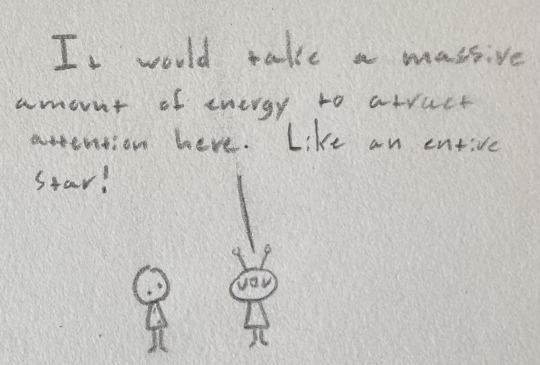 It would take a massive
amount of energy to atract
attention here. Like an entire
star!